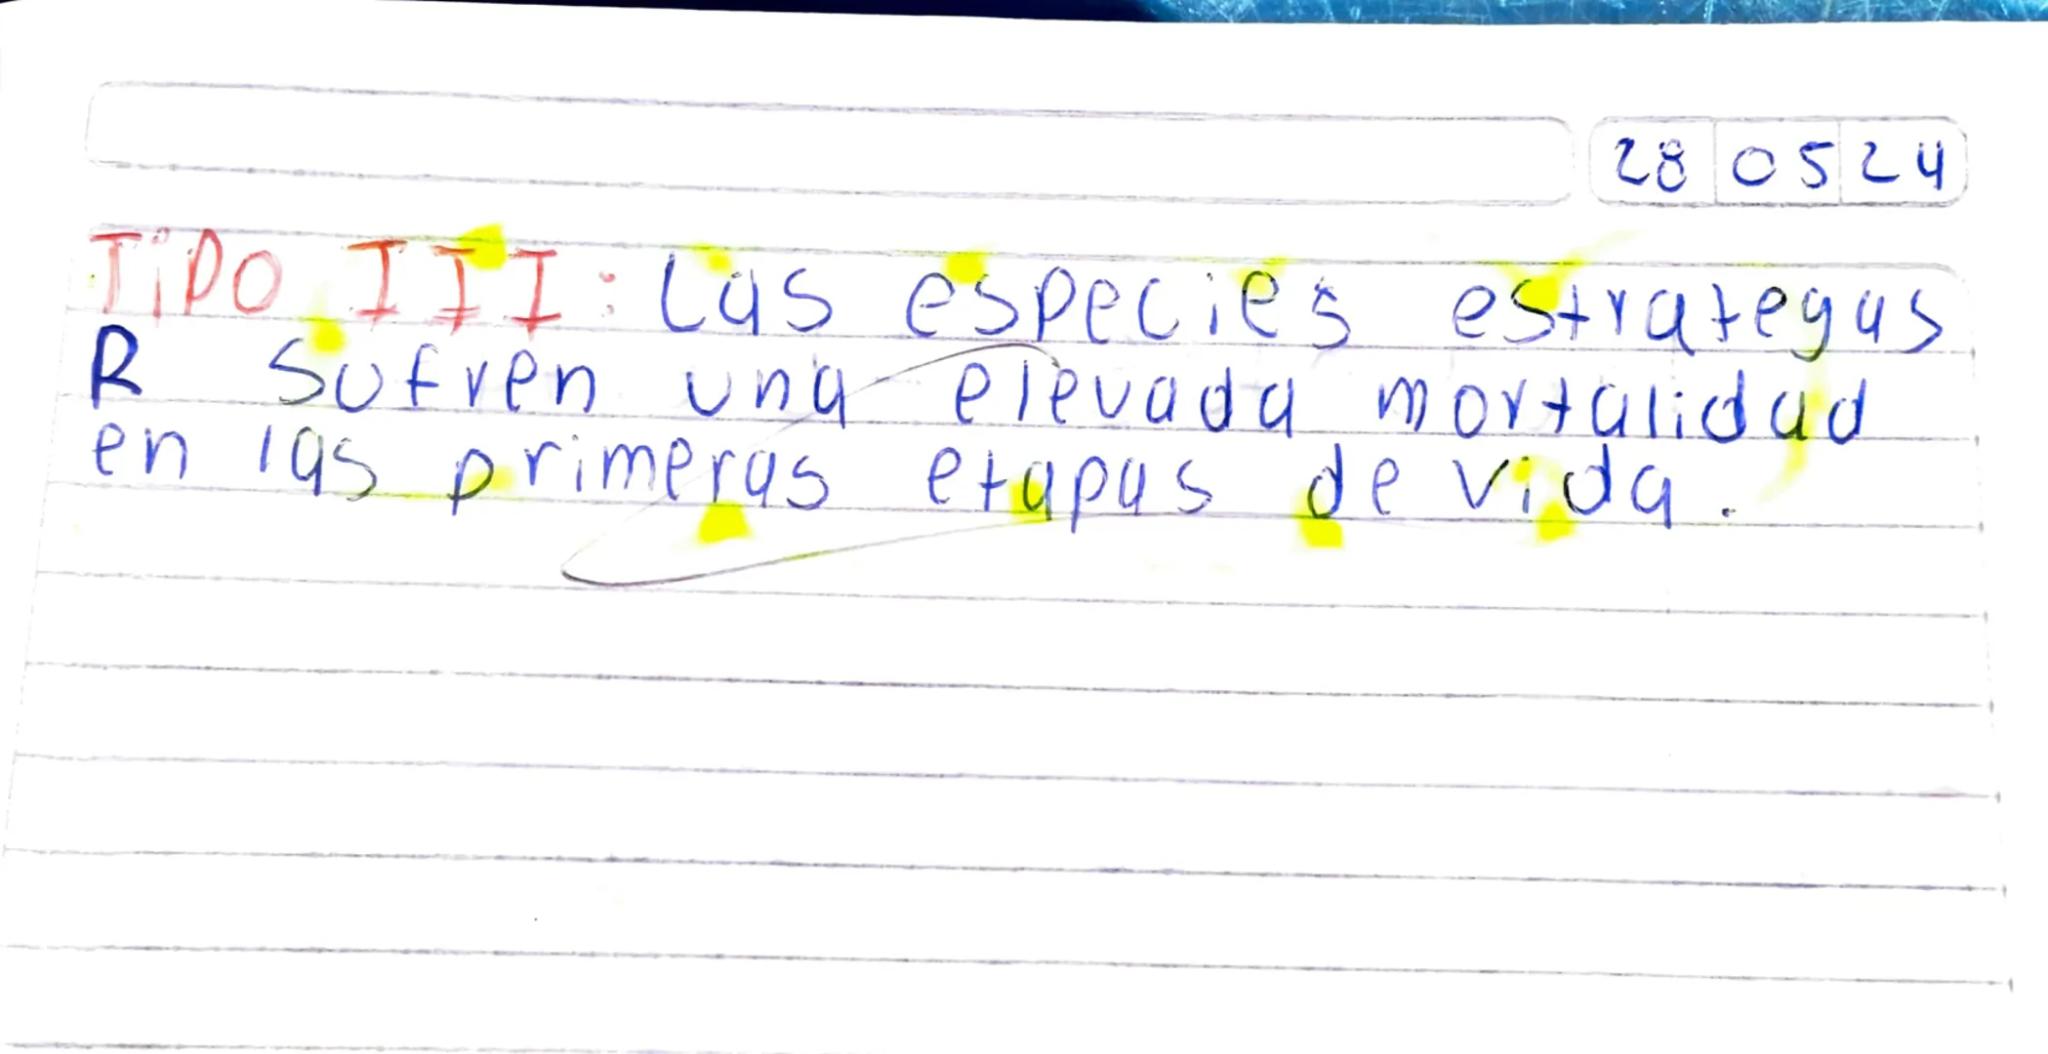 28 05 24
Tipo III: Las especies estrategas
R sufren una elevada mortalidad
en las primeras etapas de vida.